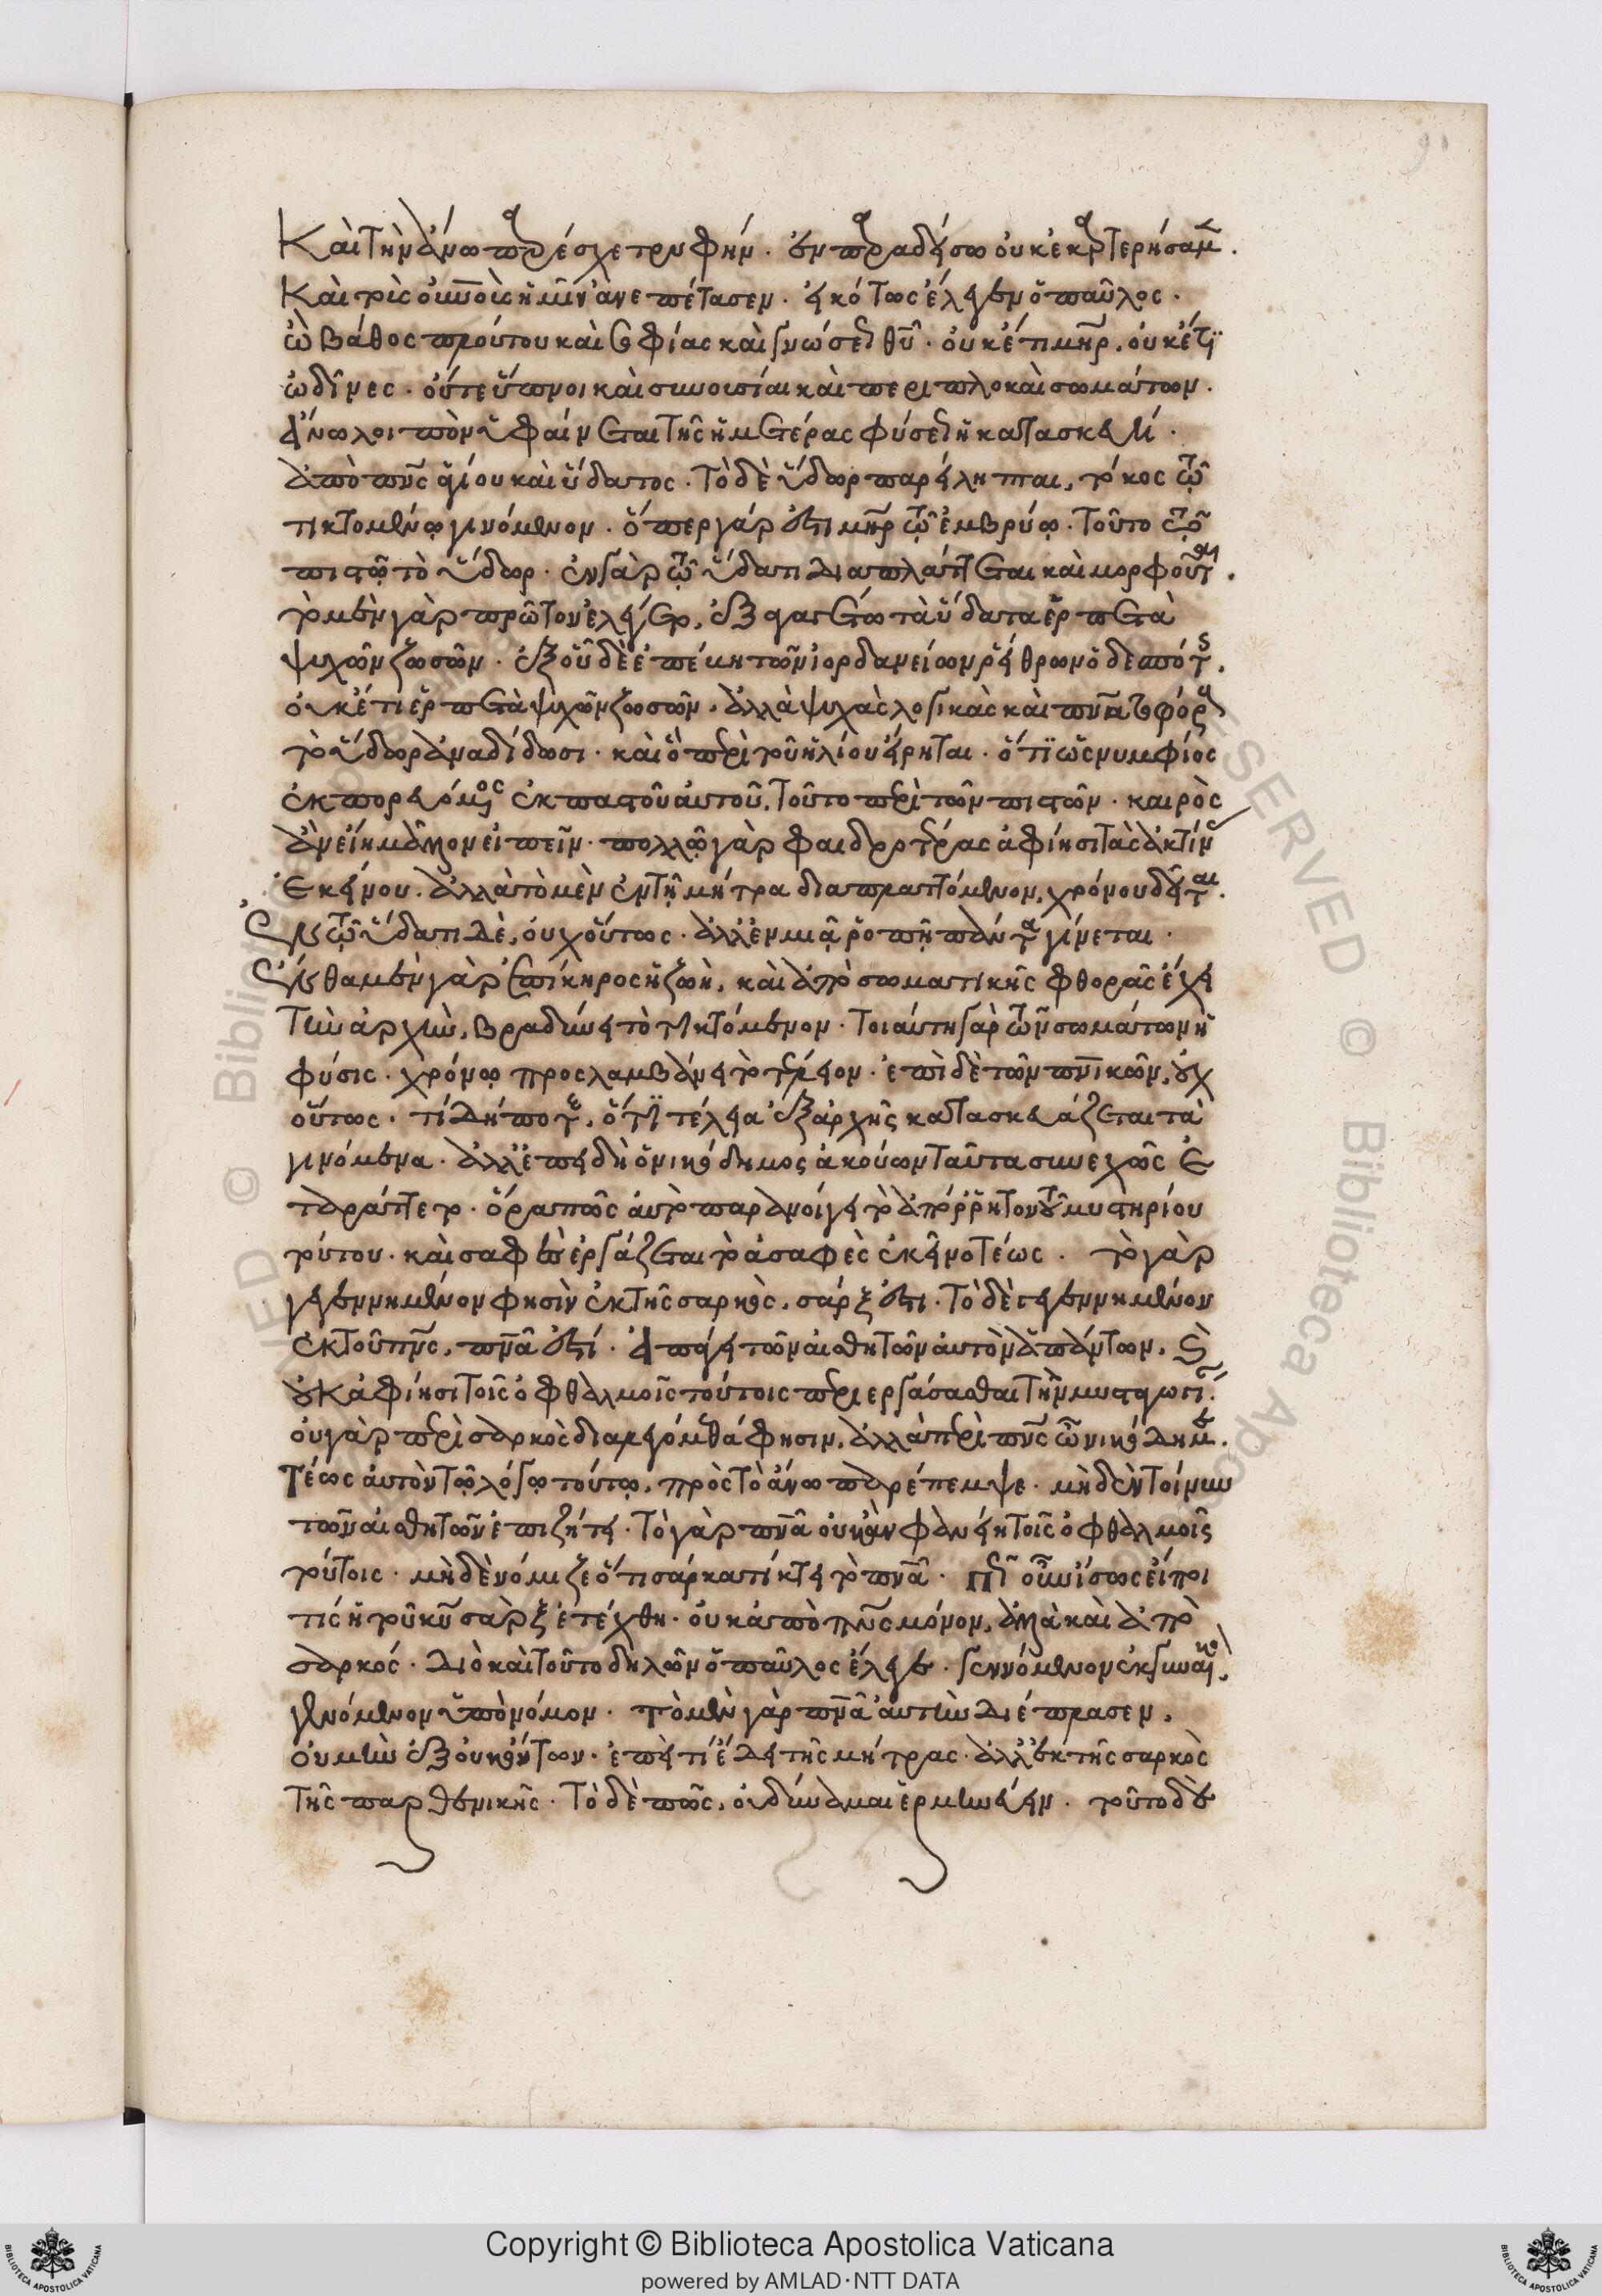 Καὶ τὴν ἄνω παρέσχε τρυφήν. ἐν παραδείσω οὐκ ἐκαρτερήσαμεν.
Καὶ τοῖς οὐνοῖς ἡμῖν ἀνεπέτασεν. εἰκότως ἔλεγεν ὁ παῦλος.
ὢ βάθος πλούτου καὶ σοφίας καὶ γνώσεως θυ. οὐκέτι μηρ. οὐκέτι
ὠδῖνες. οὔτε ὕπνοι καὶ συνουσίαι καὶ περιπλοκαὶ σωμάτων.
ἄνω λοιπὸν ὑφαίνεται τῆς ἡμετέρας φύσεως ἡ κατασκευή.
ἀπὸ πνς ἁγίου καὶ ὕδατος. Τὸ δὲ ὕδωρ παρείληπται, τόκος τῶ
τικτομένω γινόμενον. ὅπερ γάρ ἐστι μηρ τῶ ἐμβρύω. Τοῦτο τῶ
πιστῶ τὸ ὕδωρ. ἐν γὰρ τῶ ὕδατι διαπλάττεται καὶ μορφοῦται.
τὸ μὲν γὰρ πρῶτον ἐλέγετο, ἐξαγαγέτω τὰ ὕδατα ἑρπετὰ
ψυχῶν ζωσῶν. ἐξ οὗ δὲ ἐπέβη τῶν ἰορδανείων ῥείθρων ὁ δεσπότης.
οὐκέτι ἑρπετὰ ψυχῶν ζωσῶν. ἀλλὰ ψυχὰς λογικὰς καὶ πνατοφόρους
τὸ ὕδωρ ἀναδίδωσι. καὶ ὃ περὶ τοῦ ἡλίου εἴρηται. ὅτι ὡς νυμφίος
ἐκπορευόμενος ἐκ παστοῦ αὐτοῦ. Τοῦτο περὶ τῶν πιστῶν. καιρὸς
ἂν εἴη μᾶλλον εἰπεῖν. πολλῶ γὰρ φαιδροτέρας ἀφίησι τὰς ἀκτῖνας
Ἐκείνου. ἀλλὰ τὸ μὲν ἐν τῆ μήτρα διαπλαττόμενον, χρόνου δεῖται.
Ἐν τῶ ὕδατι δὲ, οὐχ οὕτως. ἀλλ' ἐν μιᾶ ῥοπῆ πάντα γίνεται.
Ἔνθα μὲν γὰρ ἐπίκηρος ἡ ζωὴ, καὶ ἀπὸ σωματικῆς φθορᾶς ἔχει
Τὴν ἀρχὴν, βραδύνει τὸ τικτόμενον. Τοιαύτη γὰρ τῶν σωμάτων ἡ
φύσις. χρόνω προσλαμβάνει τὸ τέλειον. ἐπὶ δὲ τῶν πνικῶν, οὐχ
οὕτως. τί δήποτε, ὅτι τέλεια ἐξ ἀρχῆς κατασκευάζεται τὰ
γινόμενα. ἀλλ' ἐπειδὴ ὁ νικόδημος ἀκούων ταῦτα συνεχῶς ἐ
ταράττετο. ὅρα πῶς αὐτῶ παρανοίγει τὸ ἀπόρρητον τοῦ μυστηρίου
τούτου. καὶ σαφὲς ἐργάζεται τὸ ἀσαφὲς ἐκείνο τέως. τὸ γὰρ
γεγεννημένον φησὶν ἐκ τῆς σαρκὸς, σάρξ ἐστι. Τὸ δὲ γεγεννημένον
ἐκ τοῦ πνς, πνα ἐστί. Ἀπάγει τῶν αἰσθητῶν αὐτὸν ἁπάντων. καὶ
οὐκ ἀφίησι τοῖς ὀφθαλμοῖς τούτοις περιεργάσασθαι τὴν μυσταγωγίαν.
οὐ γὰρ περὶ σαρκὸς διαλεγόμεθά φησιν, ἀλλὰ περὶ πνς ὦ νικόδημε.
Τέως αὐτὸν τῶ λόγω τούτω, πρὸς τὸ ἄνω παρέπεμψε. μηδὲν τοίνυν
τῶν αἰσθητῶν ἐπιζήτει. Τὸ γὰρ πνα οὐκ ἂν φανείη τοῖς ὀφθαλμοῖς
τούτοις. μὴ δὲ νόμιζε ὅτι σάρκα τίκτει τὸ πνα. πῶς οὖν ἴσως εἴποι
τίς ἡ τοῦ κυ σὰρξ ἐτέχθη. οὐκ ἀπὸ πνς μόνον, ἀλλὰ καὶ ἀπὸ
σαρκός. Διὸ καὶ τοῦτο δηλῶν ὁ παῦλος ἔλεγε. γεννόμενον ἐκ γυναικὸς,
γενόμενον ὑπὸ νόμον. Τὸ μὲν γὰρ πνα αὐτὴν διέπλασεν.
οὐ μὴν ἐξ οὐκ ὄντων. ἐπεὶ τί ἔδει τῆς μήτρας. ἀλλ' ἐκ τῆς σαρκὸς
Τῆς παρθενικῆς. Τὸ δὲ πῶς, οὐ δύναμαι ἑρμηνεύειν. τοῦτο δὲ
Copyright © Biblioteca Apostolica Vaticana
powered by AMLAD·NTT DATA